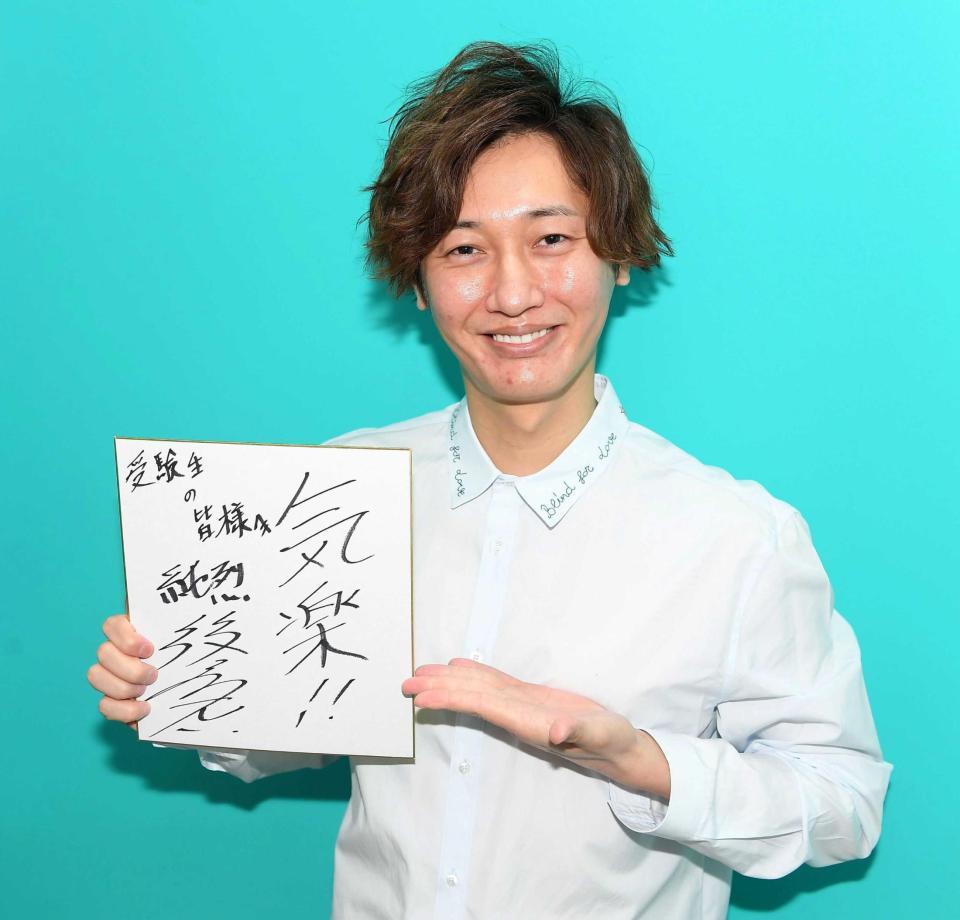 受験生
の
皆様へ
気楽!!
純烈
後
for love
Blind for love